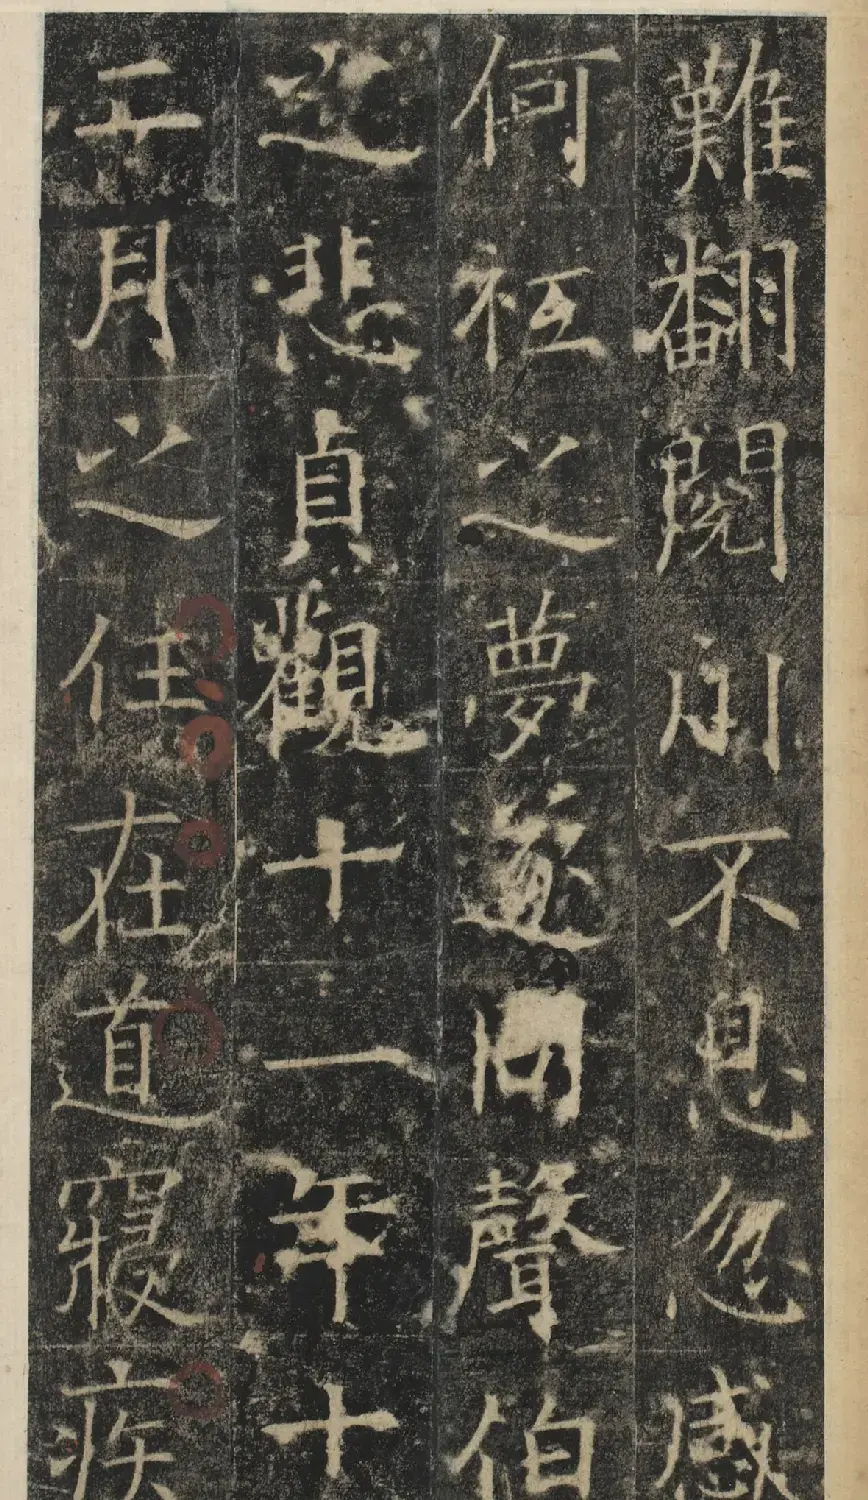 難翻閱川不息忽感
何祗之夢遂同聲伯
之悲貞觀十一年十
二月之任在道寢疾